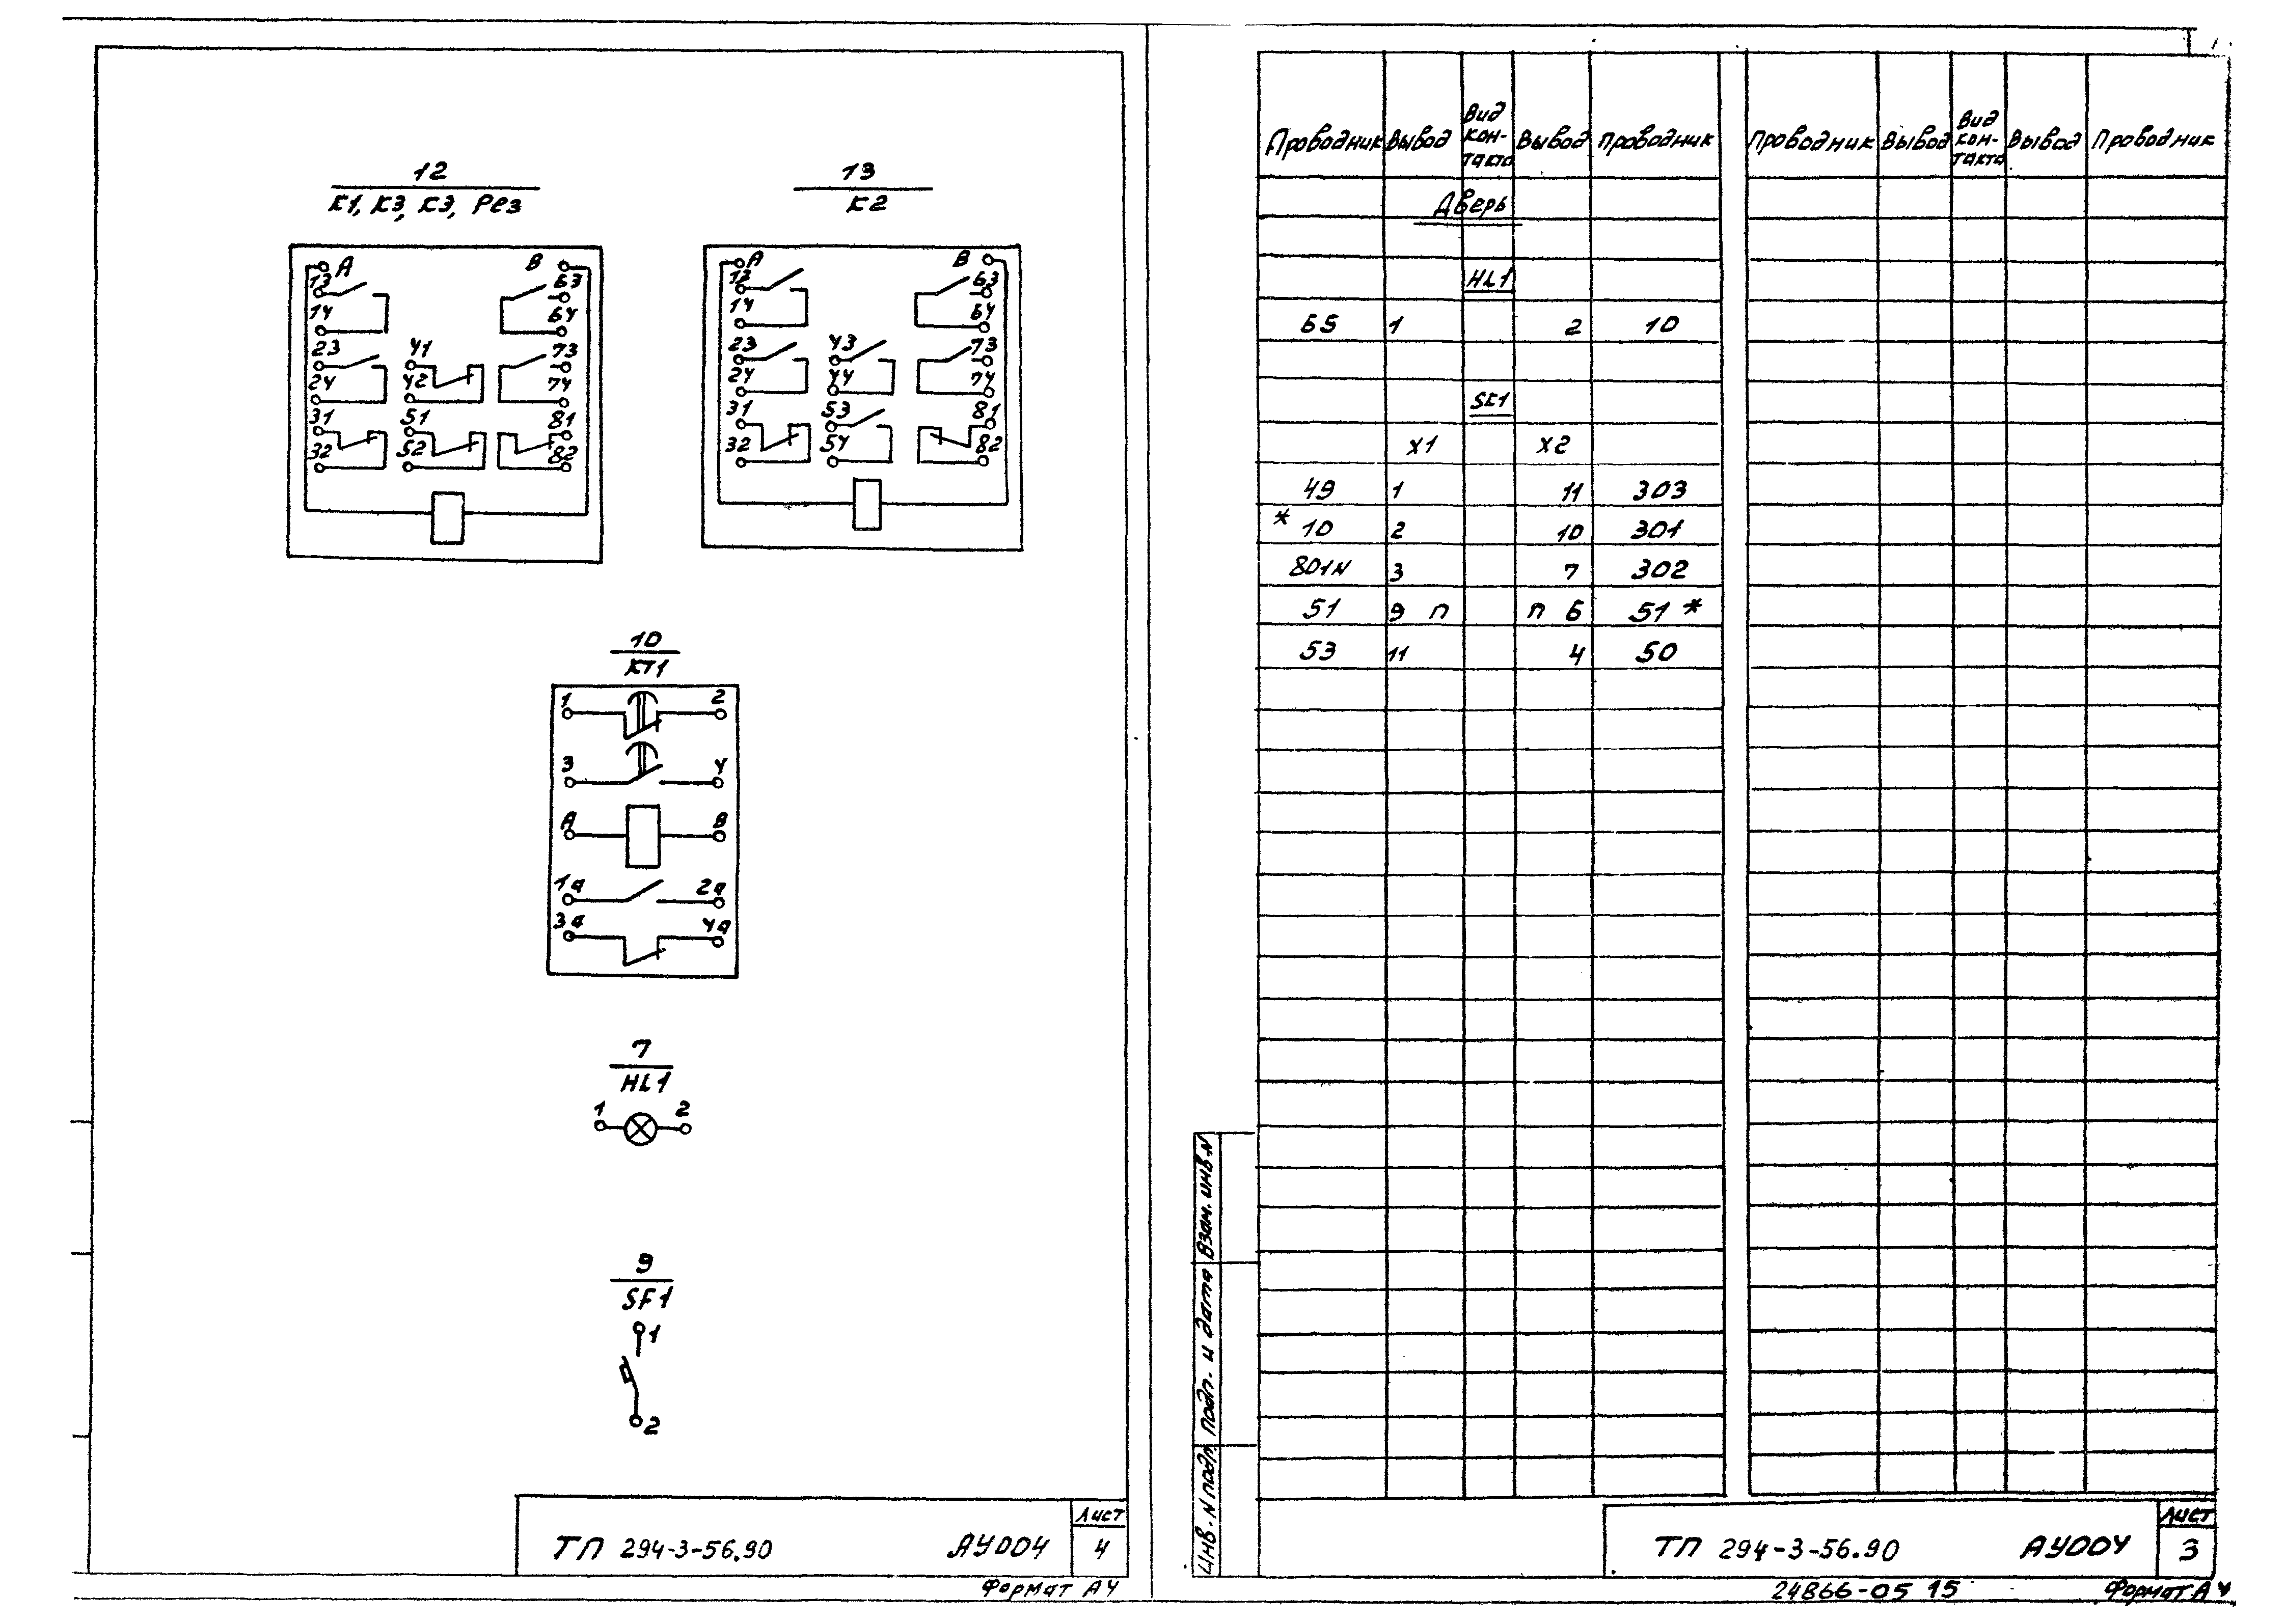 12
К1, К3, К3, Рез
А В
13 63
14 64
23 41 73
24 42 74
31 51 81
32 52 82
13
К2
А В
13 63
14 64
23 43 73
24 44 74
31 53 81
32 54 82
10
КТ1
1 2
3 4
А В
1а 2а
3а 4а
7
HL1
1 2
9
SF1
1
2
ТП 294-3-56.90 АУ004
Лист
4
Формат А4
Проводник Вывод Вид кон-такта Вывод Проводник Проводник Вывод Вид кон-такта Вывод Проводник
Дверь
HL1
65 1 2 10
SK1
X1 X2
49 1 11 303
* 10 2 10 301
801N 3 7 302
51 9 п п 6 51 *
53 11 4 50
Взам. инв N
Подп. и дата
Инв. N подл.
ТП 294-3-56.90 АУ004
Лист
3
24866-05 15 Формат А4